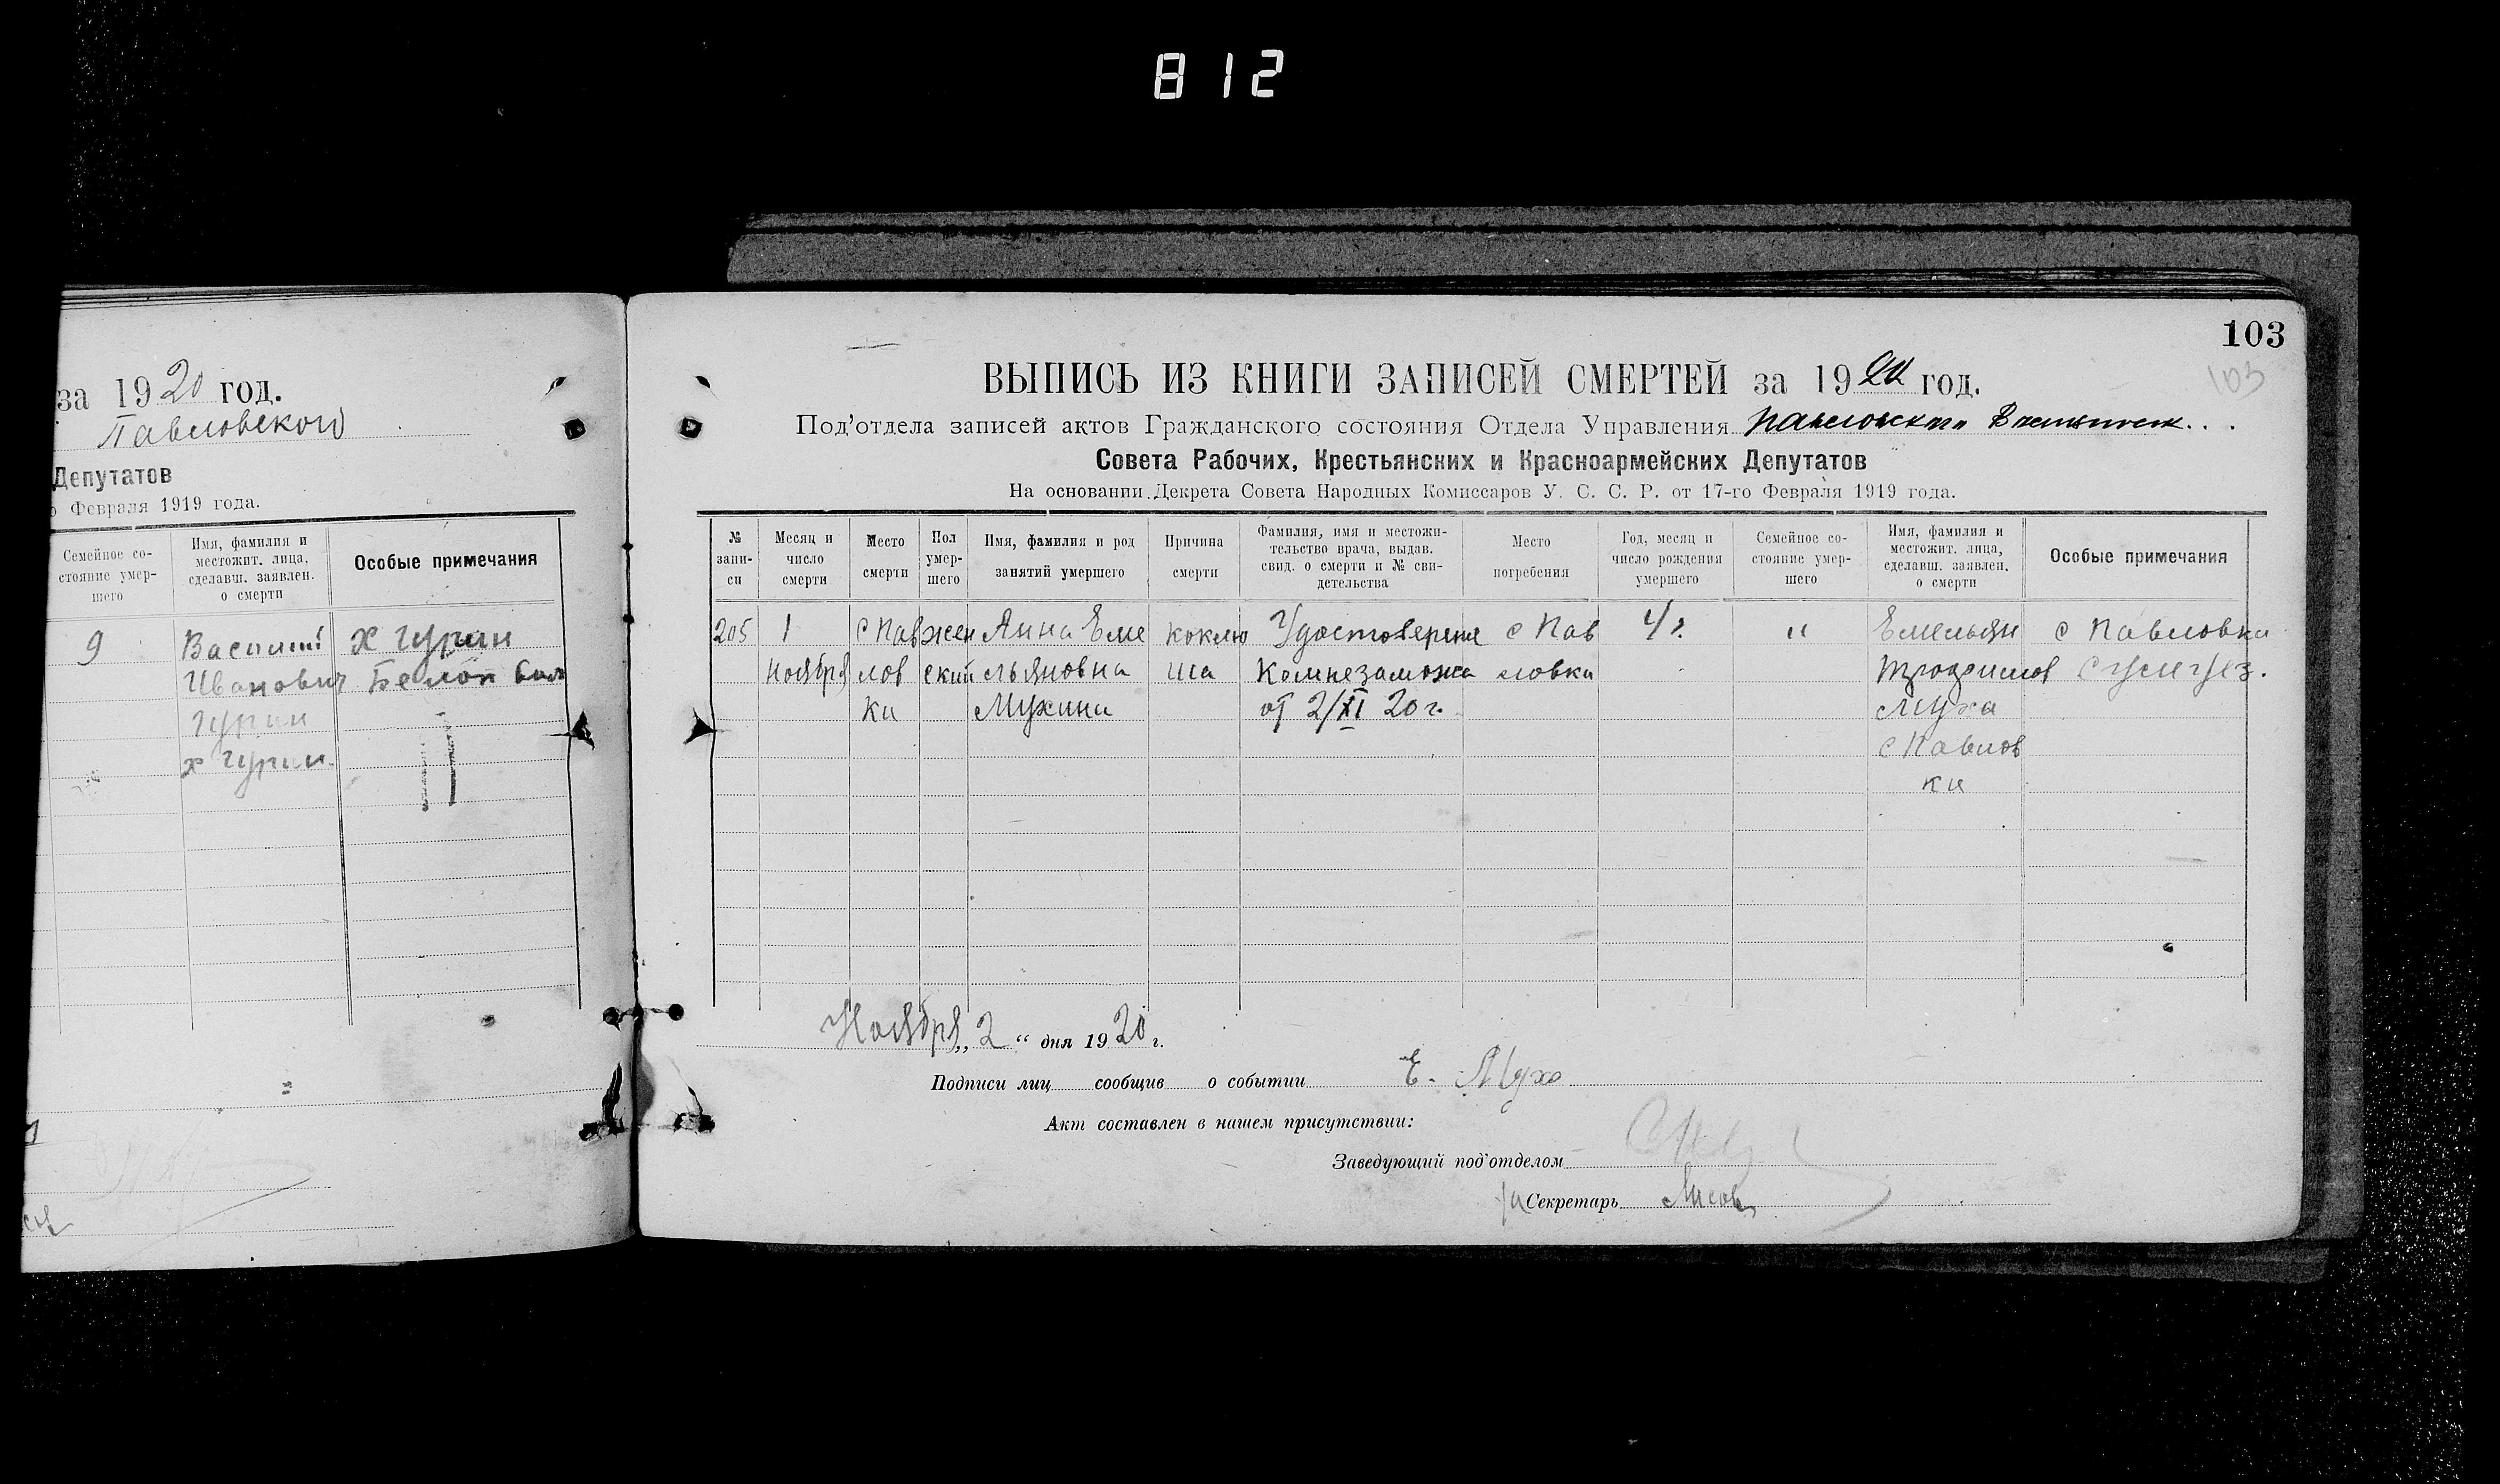 812
за 1920 год.
Павловского
Депутатов
Февраля 1919 года.
Семейное со-
стояние умер-
шего
Имя, фамилия и
местожит. лица,
сделавш. заявлен.
о смерти
Особые примечания
9
Василий
Иванович
Гурин
х Гурин
х Гурин
103
103
ВЫПИСЬ ИЗ КНИГИ ЗАПИСЕЙ СМЕРТЕЙ за 1920 год.
Под'отдела записей актов Гражданского состояния Отдела Управления Павловского
Совета Рабочих, Крестьянских и Красноармейских Депутатов
На основании Декрета Совета Народных Комиссаров У. С. С. Р. от 17-го Февраля 1919 года.
№
запи-
си
Месяц и
число
смерти
Место
смерти
Пол
умер-
шего
Имя, фамилия и род
занятий умершего
Причина
смерти
Фамилия, имя и местожи-
тельство врача, выдав.
свид. о смерти и № сви-
детельства
Место
погребения
Год, месяц и
число рождения
умершего
Семейное со-
стояние умер-
шего
Имя, фамилия и
местожит. лица,
сделавш. заявлен.
о смерти
Особые примечания
205
1
Ноября
с Пав
лов
ки
жен
ский
Анна Еме
льяновна
Мухина
коклю
ша
Удостоверение
Комнезаможа
от 2/XI 20 г.
с Пав
ловка
4 г.
"
Емельян
Трофимов
Муха
с Павлов
ки
с Павловка
Ноября „2“ дня 1920 г.
Подписи лиц сообщив о событии Е. Муха
Акт составлен в нашем присутствии:
Заведующий под'отделом
Секретарь